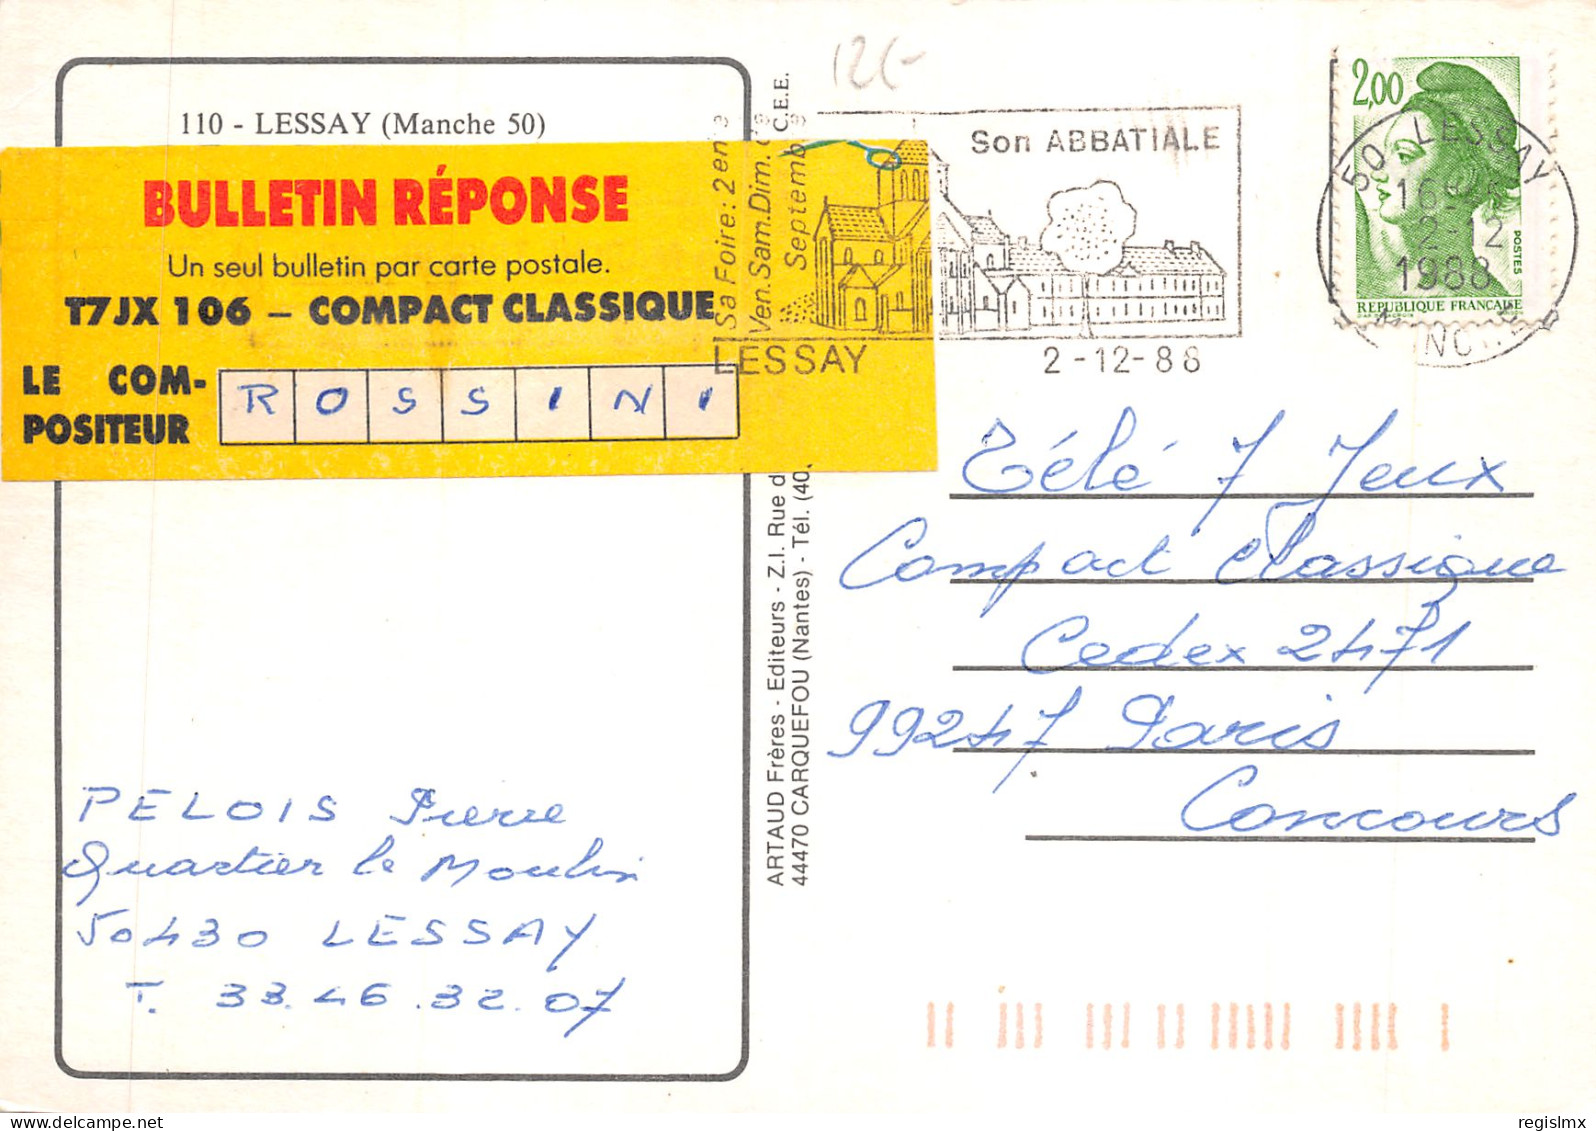 12€
110 - LESSAY (Manche 50)
BULLETIN RÉPONSE
Un seul bulletin par carte postale.
T7JX 106 – COMPACT CLASSIQUE
LE COM-
POSITEUR
ROSSINI
Sa Foire: 2en
Ven.Sam.Dim.
Septemb
Son ABBATIALE
LESSAY
2-12-88
C.E.E.
2,00
POSTES
REPUBLIQUE FRANÇAISE
50 LESSAY
16H
2-12
1988
ARTAUD Frères - Editeurs - Z.I. Rue d
44470 CARQUEFOU (Nantes) - Tél. (40
Télé 7 Jeux
Compact Classique
Cedex 2471
99247 Paris
Concours
PELOIS Pierre
Quartier le Moulin
50430 LESSAY
T. 33.46.32.07
delcampe.net
regislmx